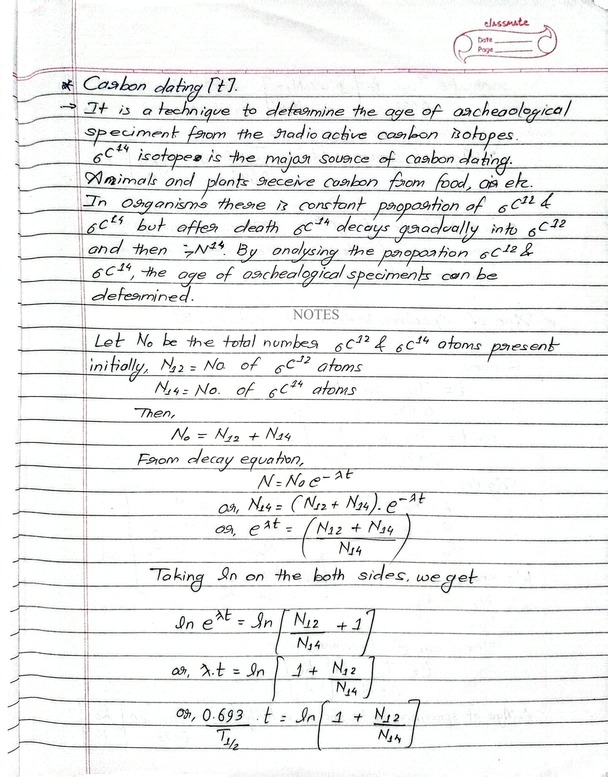 classmate
Date
Page
* Carbon dating [t].
→ It is a technique to determine the age of archeaological
speciment from the radio active carbon isotopes.
₆C¹⁴ isotopes is the major source of carbon dating.
Animals and plants receive carbon from food, air etc.
In organisms there is constant proportion of ₆C¹² &
₆C¹⁴ but after death ₆C¹⁴ decays gradually into ₆C¹²
and then ₇N¹⁴. By analysing the proportion ₆C¹² &
₆C¹⁴, the age of archealogical speciments can be
determined.
NOTES
Let N₀ be the total number ₆C¹² & ₆C¹⁴ atoms present
initially, N₁₂ = No. of ₆C¹² atoms
N₁₄ = No. of ₆C¹⁴ atoms
Then,
N₀ = N₁₂ + N₁₄
From decay equation,
N = N₀ e^-λt
or, N₁₄ = (N₁₂ + N₁₄). e^-λt
or, e^λt = ((N₁₂ + N₁₄)/N₁₄)
Taking ln on the both sides, we get
ln e^λt = ln [N₁₂/N₁₄ + 1]
or, λ.t = ln [1 + N₁₂/N₁₄]
or, 0.693/T₁/₂ . t = ln [1 + N₁₂/N₁₄]